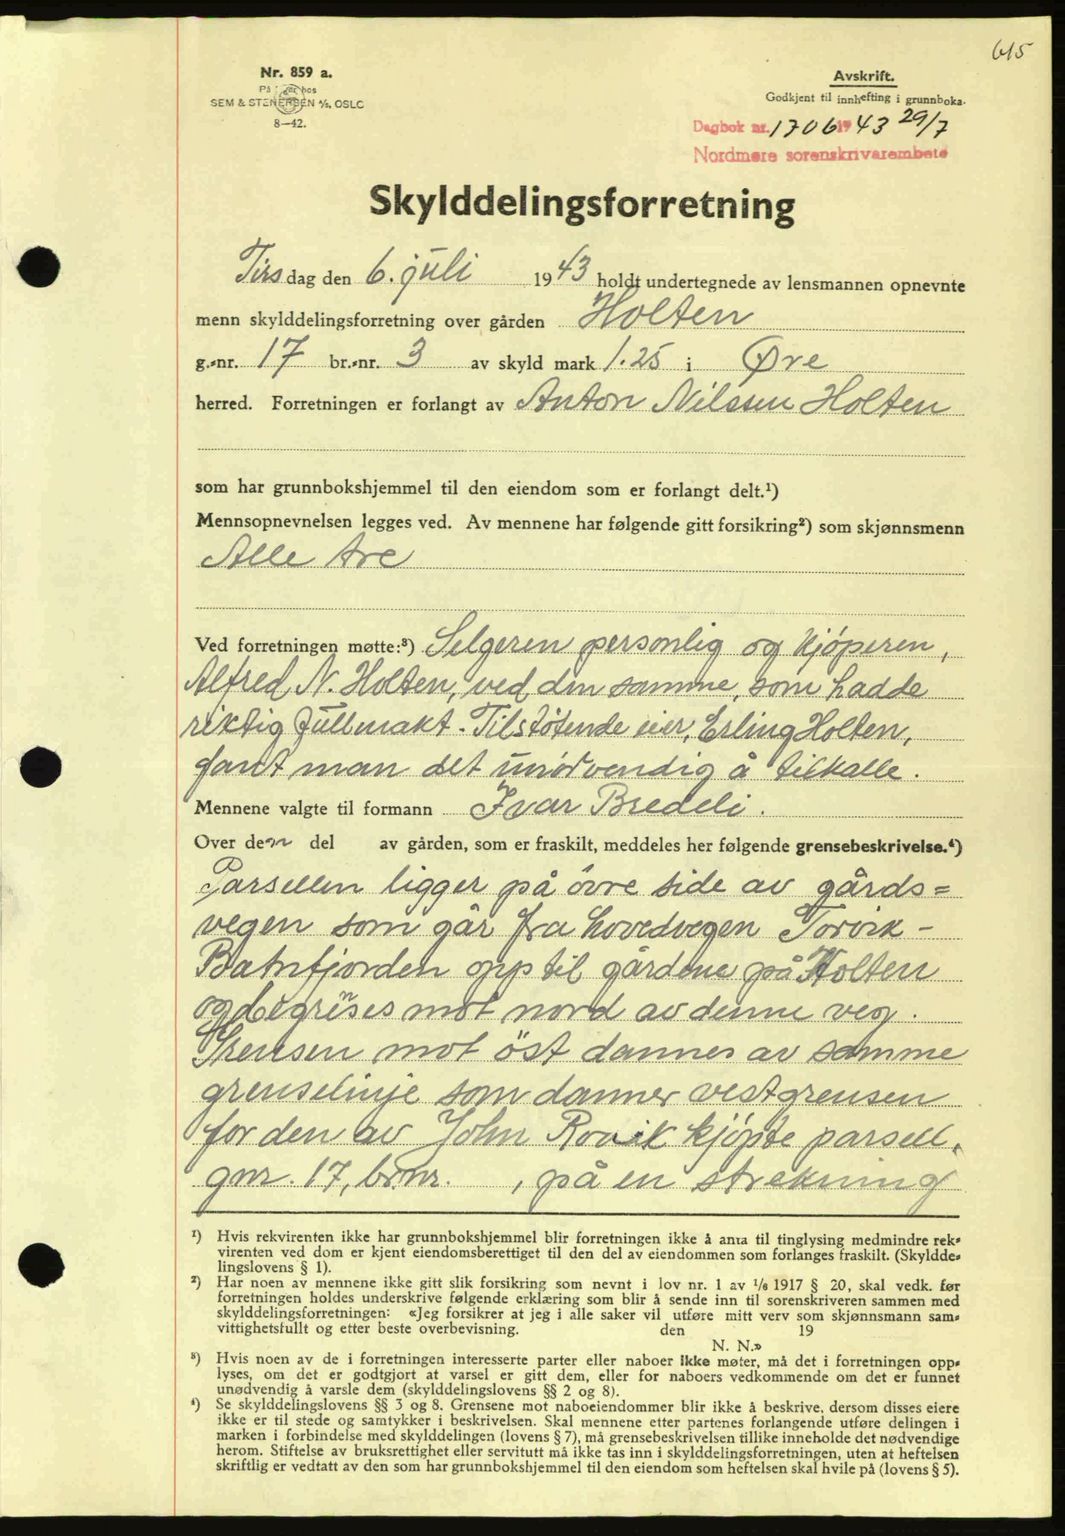 615
Nr. 859 a.
På lager hos
SEM & STENERSEN A/S, OSLO
8—42.
Avskrift.
Godkjent til innhefting i grunnboka.
Dagbok nr. 1706 19 43 29/7
Nordmøre sorenskrivarembete
Skylddelingsforretning
Tirsdag den 6. juli 1943 holdt undertegnede av lensmannen opnevnte
menn skylddelingsforretning over gården Holten
g.-nr. 17 br.-nr. 3 av skyld mark 1.25 i Øre
herred. Forretningen er forlangt av Anton Nilssen Holten
som har grunnbokshjemmel til den eiendom som er forlangt delt.¹)
Mennsopnevnelsen legges ved. Av mennene har følgende gitt forsikring²) som skjønnsmenn
Alle tre
Ved forretningen møtte:³) Selgeren personlig og kjöperen,
Alfred N. Holten, ved den samme, som hadde
riktig fullmakt. Tilstötende eier, Erling Holten,
fant man det unödvendig å tilkalle.
Mennene valgte til formann Ivar Bredeli.
Over den del av gården, som er fraskilt, meddeles her følgende grensebeskrivelse.⁴)
Parsellen ligger på övre side av gårds=
vegen som går fra hovedvegen Torvik-
Batnfjorden opp til gårdene på Holten
og begrenses mot nord av denne veg.
Grensen mot öst dannes av samme
grenselinje som danner vestgrensen
for den av John Rovik kjöpte parsell,
gnr. 17, br.nr. , på en strekning
¹) Hvis rekvirenten ikke har grunnbokshjemmel blir forretningen ikke å anta til tinglysing medmindre rek-
virenten ved dom er kjent eiendomsberettiget til den del av eiendommen som forlanges fraskilt. (Skyldde-
lingslovens § 1).
²) Har noen av mennene ikke gitt slik forsikring som nevnt i lov nr. 1 av 1/6 1917 § 20, skal vedk. før
forretningen holdes underskrive følgende erklæring som blir å sende inn til sorenskriveren sammen med
skylddelingsforretningen: «Jeg forsikrer at jeg i alle saker vil utføre mitt verv som skjønnsmann sam-
vittighetsfullt og etter beste overbevisning. den 19
N. N.»
³) Hvis noen av de i forretningen interesserte parter eller naboer ikke møter, må det i forretningen opp-
lyses, om det er godtgjort at varsel er gitt dem, eller for naboers vedkommende om det er funnet
unødvendig å varsle dem (skylddelingslovens §§ 2 og 8).
⁴) Se skylddelingslovens §§ 3 og 8. Grensene mot naboeiendommer blir ikke å beskrive, dersom disses eiere
ikke er til stede og samtykker i beskrivelsen. Skal mennene etter partenes forlangende utføre delingen i
marken i forbindelse med skylddelingen (lovens § 7), må grensebeskrivelsen tillike inneholde det nødvendige
herom. Stiftelse av bruksrettighet eller servitutt må ikke tas inn i skylddelingsforretningen, uten at heftelsen
skriftlig er vedtatt av den som har grunnbokshjemmel til den eiendom som heftelsen skal hvile på (lovens § 5).